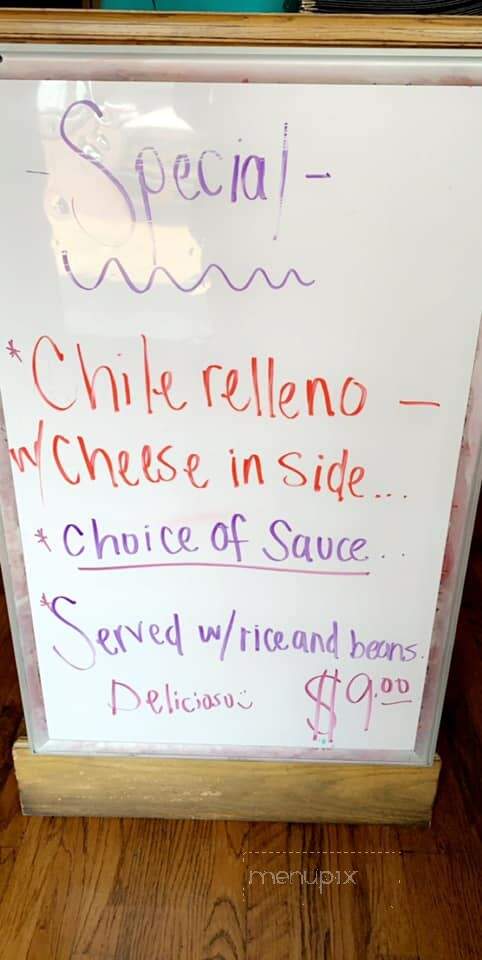 - Special -
* Chile relleno -
w/ Cheese in side...
* Choice of Sauce..
* Served w/ rice and beans.
Delicioso $9.00
menupix